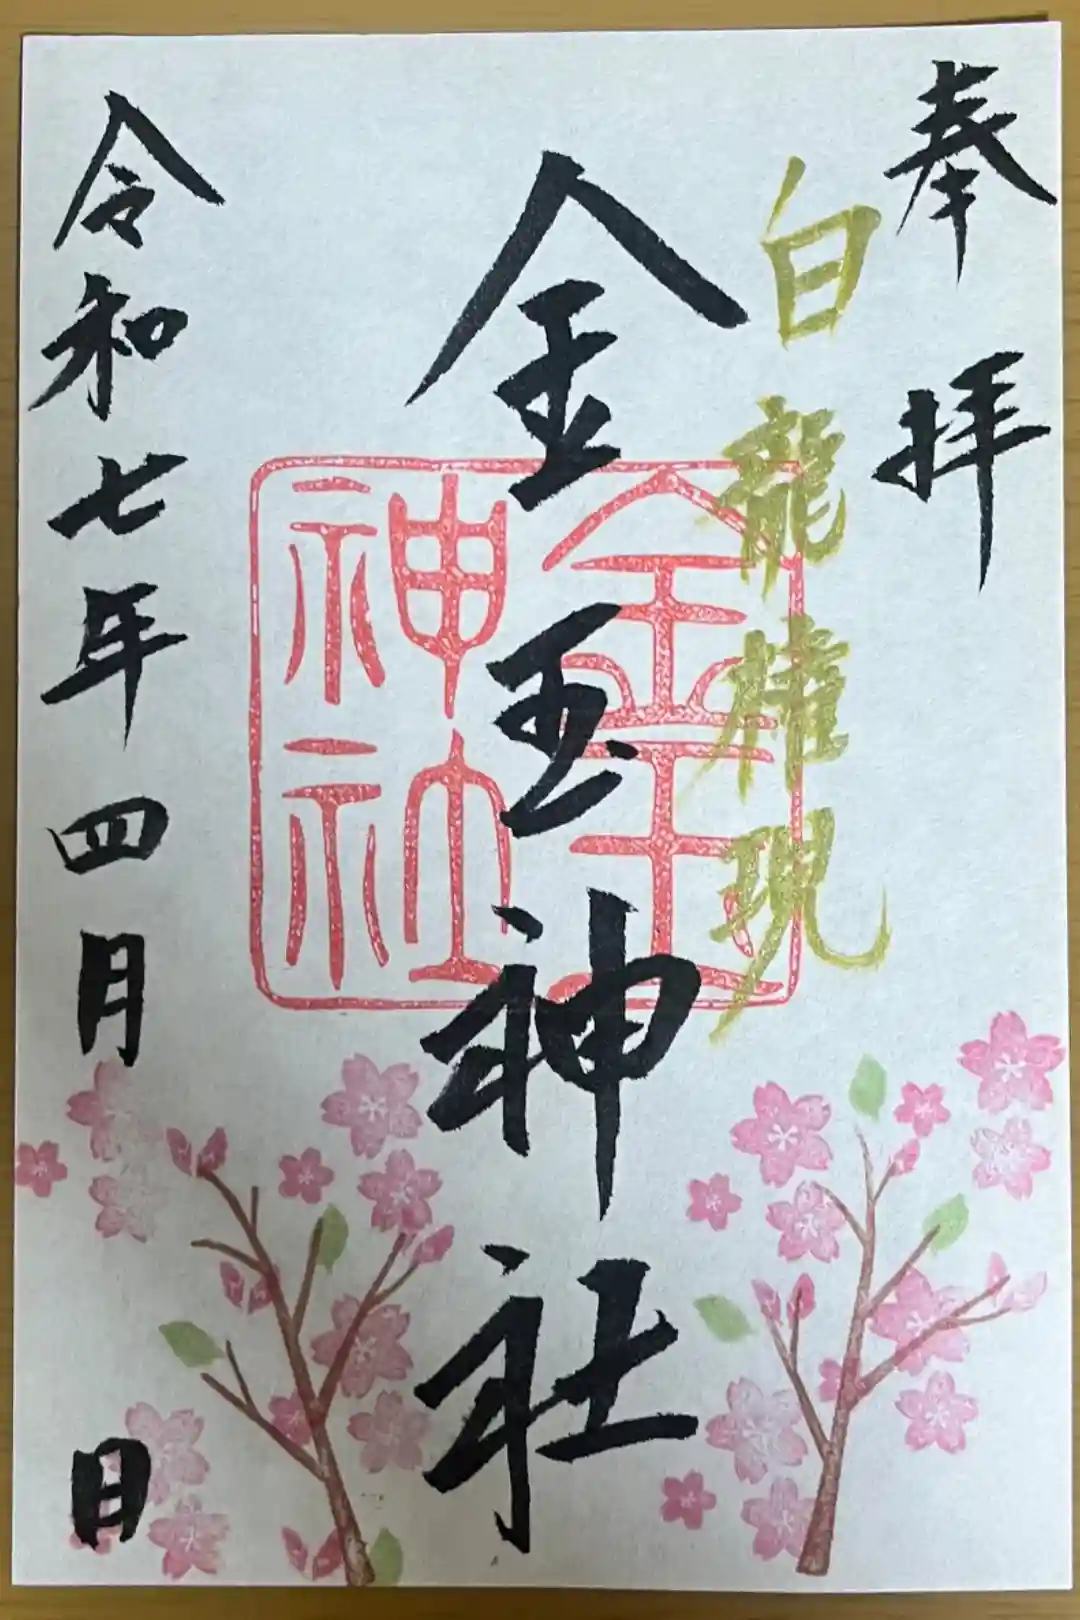 奉拝
白龍権現
金玉神社
金玉
神社
令和七年四月 日